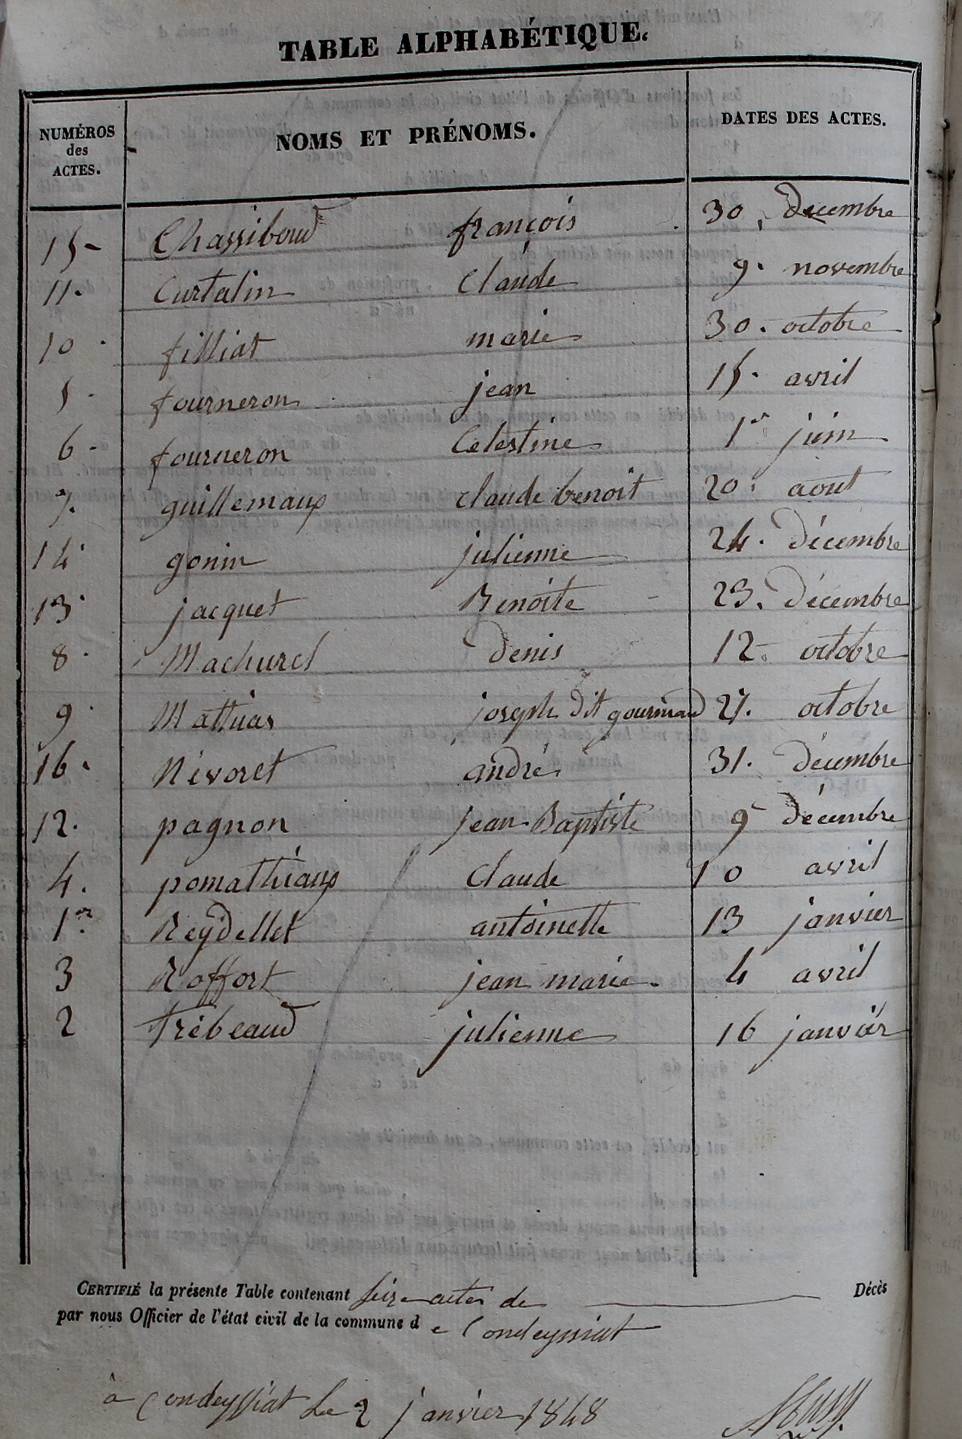 TABLE ALPHABÉTIQUE.
NUMÉROS des ACTES. NOMS ET PRÉNOMS. DATES DES ACTES.
15 Chassiboud françois 30. décembre
11. Curtalin Claude 9. novembre
10 filliat marie 30. octobre
5 fourneron jean 15. avril
6 fourneron Célestine 1er juin
7. guillemaux claude benoit 20. aout
14 gonin julienne 24. décembre
13 jacquet Benoite 23. décembre
8 Machurel denis 12. octobre
9 Mathias joseph dit gourmand 27. octobre
16. Névoret andré 31. décembre
12. pagnon jean-Baptiste 9 décembre
4. pomathiaux claude 10 avril
1er Reydellet antoinette 13 janvier
3 Roffort jean marie 4 avril
2 Trébeaud julienne 16 janvier
CERTIFIÉ la présente Table contenant seize actes de Décès
par nous Officier de l'état civil de la commune d e Condeyssiat
à Condeyssiat Le 2 janvier 1848